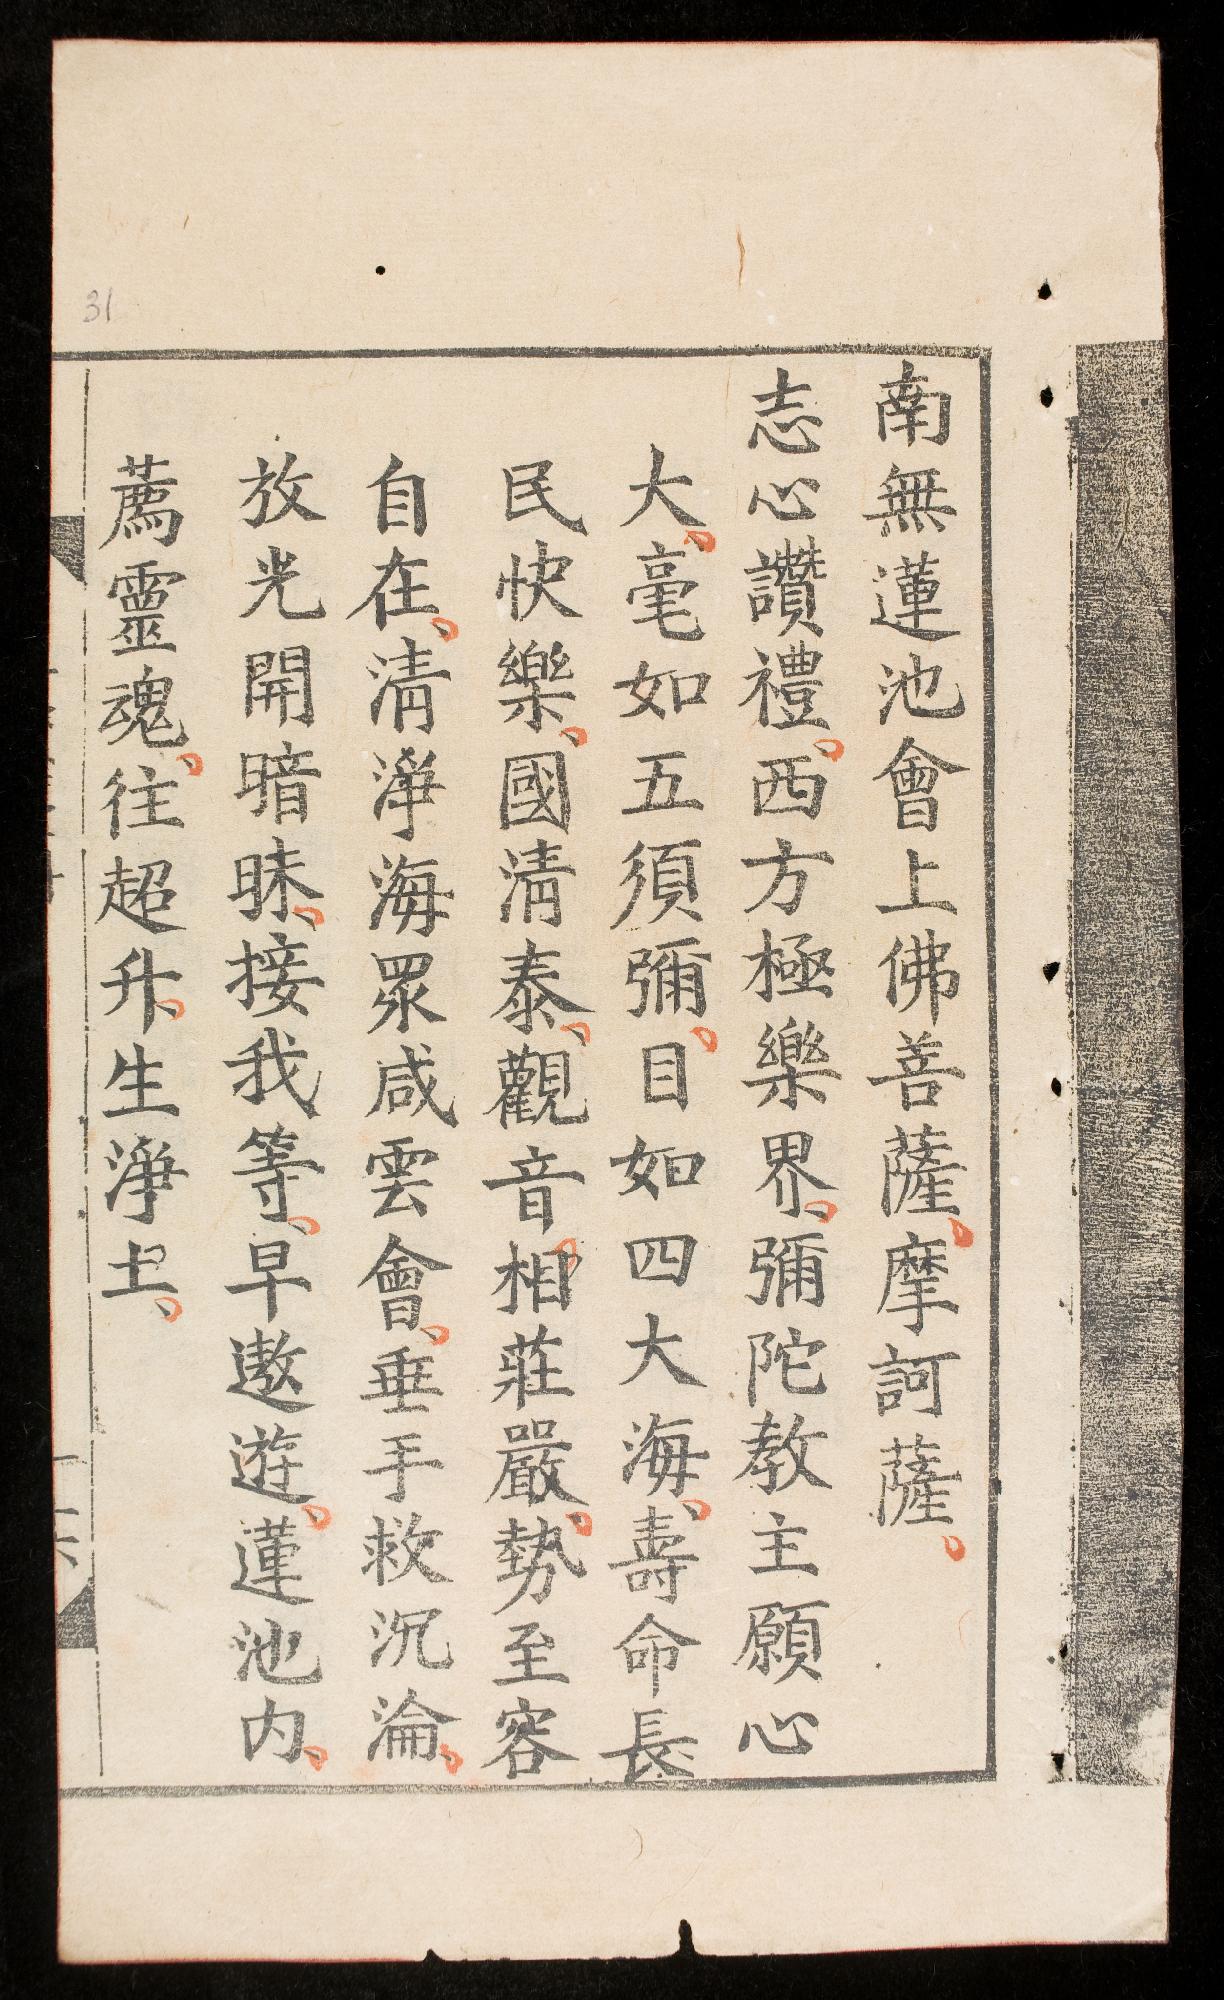 南無蓮池會上佛菩薩、摩訶薩、
志心讚禮、西方極樂界、彌陀教主願心
大、毫如五須彌、目如四大海、壽命長
民快樂、國清泰、觀音相莊嚴、勢至容
自在、清淨海眾咸雲會、垂手救沉淪、
放光開暗昧、接我等、早遨遊、蓮池內、
薦靈魂、往超升、生淨土、
31